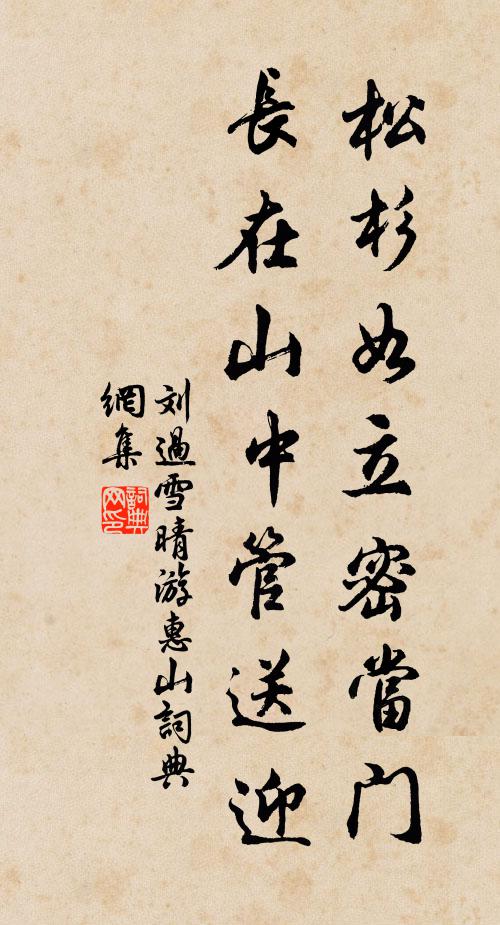 松杉如立密當门
長在山中管送迎
刘過雪晴游惠山詞典
網集
詞典网印